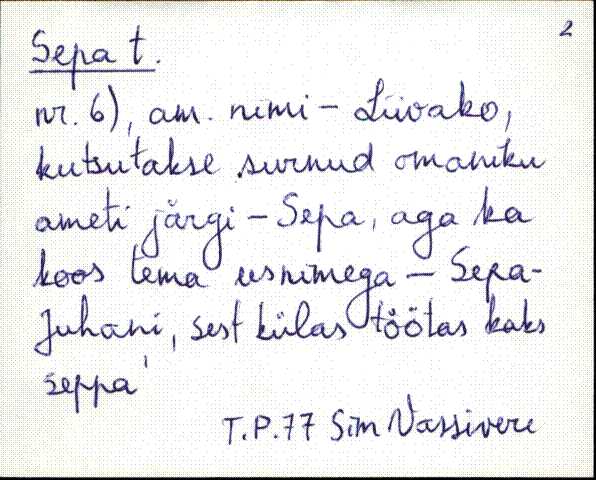 2
Sepa t.
nr. 6), am. nimi - Liivako,
kutsutakse surnud omaniku
ameti järgi - Sepa, aga ka
koos tema eesnimega - Sepa-
Juhani, sest külas töötas kaks
seppa
T.P.77 Sim Vassivere